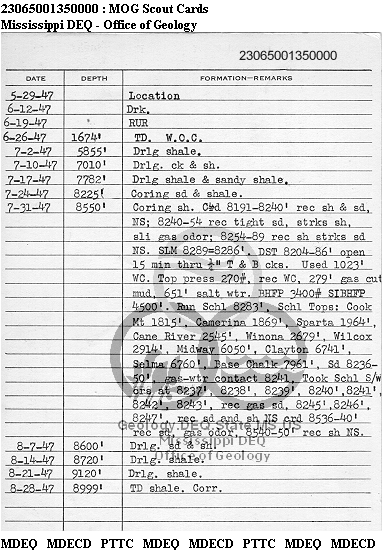 23065001350000 : MOG Scout Cards
Mississippi DEQ - Office of Geology
23065001350000
DATE DEPTH FORMATION—REMARKS
5-29-47 Location
6-12-47 Drk.
6-19-47 RUR
6-26-47 1674' TD. W.O.C.
7-2-47 5855' Drlg shale.
7-10-47 7010' Drlg. ck & sh.
7-17-47 7782' Drlg shale & sandy shale.
7-24-47 8225' Coring sd & shale.
7-31-47 8550' Coring sh. Crd 8191-8240' rec sh & sd,
NS; 8240-54 rec tight sd, strks sh,
sli gas odor; 8254-89 rec sh strks sd
NS. SLM 8289=8286'. DST 8204-86' open
15 min thru ½" T & B cks. Used 1023'
WC. Top press 270#, rec WC, 279' gas cut
mud, 651' salt wtr. BHFP 3400# SIBHFP
4500'. Run Schl 8283'. Schl Tops: Cook
Mt 1815', Camerina 1869', Sparta 1964',
Cane River 2545', Winona 2679', Wilcox
2914', Midway 6050', Clayton 6741',
Selma 6760', Base Chalk 7961', Sd 8236-
50' gas-wtr contact 8241, Took Schl S/W
crs at 8237' 8238', 8239', 8240', 8241',
8242', 8243' rec gas sd, 8245', 8246',
8247', rec sd and sh NS crd 8536-40'
rec sd, gas odor, 8540-50' rec sh NS.
8-7-47 8600' Drlg. sd & sh.
8-14-47 8720' Drlg. shale.
8-21-47 9120' Drlg. shale.
8-28-47 8999' TD shale. Corr.
Geology.DEQ.State.MS.US
Mississippi DEQ
Office of Geology
MDEQ MDECD PTTC MDEQ MDECD PTTC MDEQ MDECD